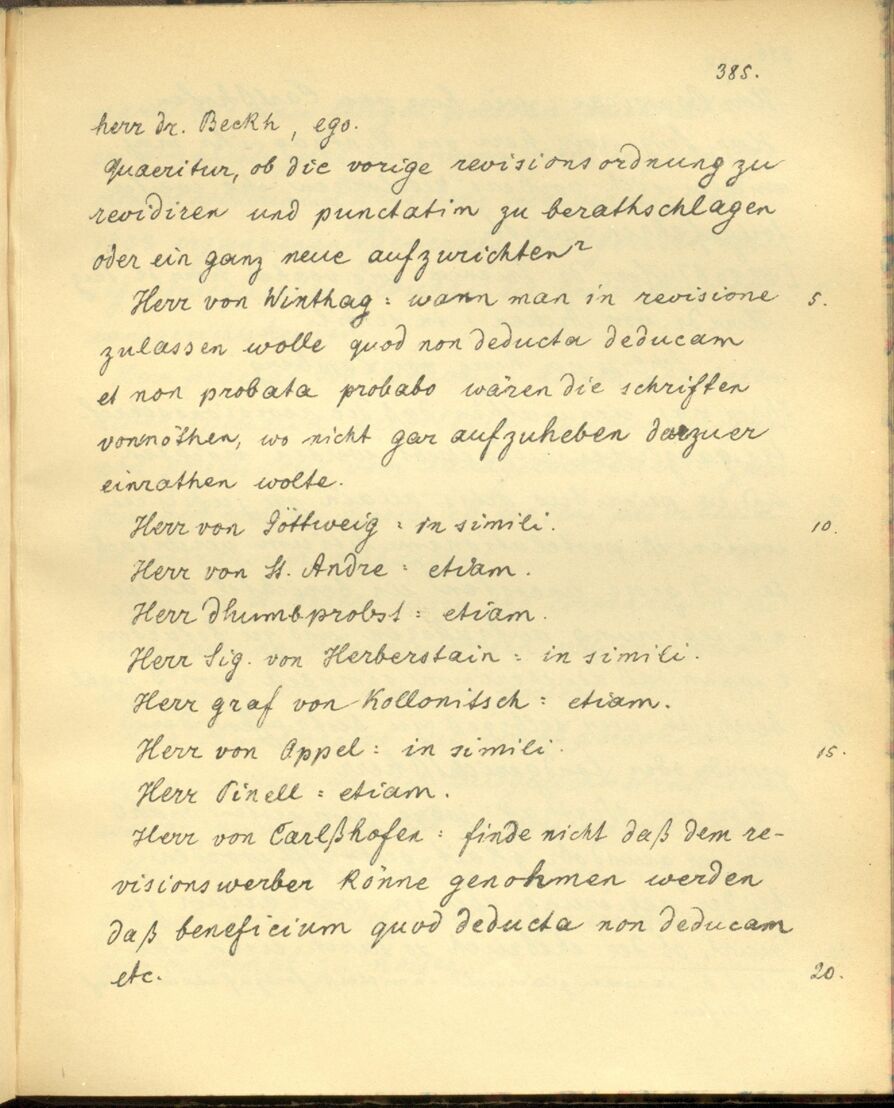 385.
herr dr. Beckh, ego.
Quaeritur, ob die vorige revisionsordnung zu
revidiren und punctatim zu berathschlagen
oder ein ganz neue aufzurichten?
Herr von Winthag: wann man in revisione 5.
zulassen wolle quod non deducta deducam
et non probata probabo wären die schriften
vonnöthen, wo nicht gar aufzuheben darzu er
einrathen wolte.
Herr von Göttweig: in simili. 10.
Herr von St. Andre: etiam.
Herr dhumbprobst: etiam.
Herr Sig. von Herberstain: in simili.
Herr graf von Kollonitsch: etiam.
Herr von Appel: in simili. 15.
Herr Pinell: etiam.
Herr von Carlßhofen: finde nicht daß dem re-
visionswerber könne genohmen werden
daß beneficium quod deducta non deducam
etc. 20.